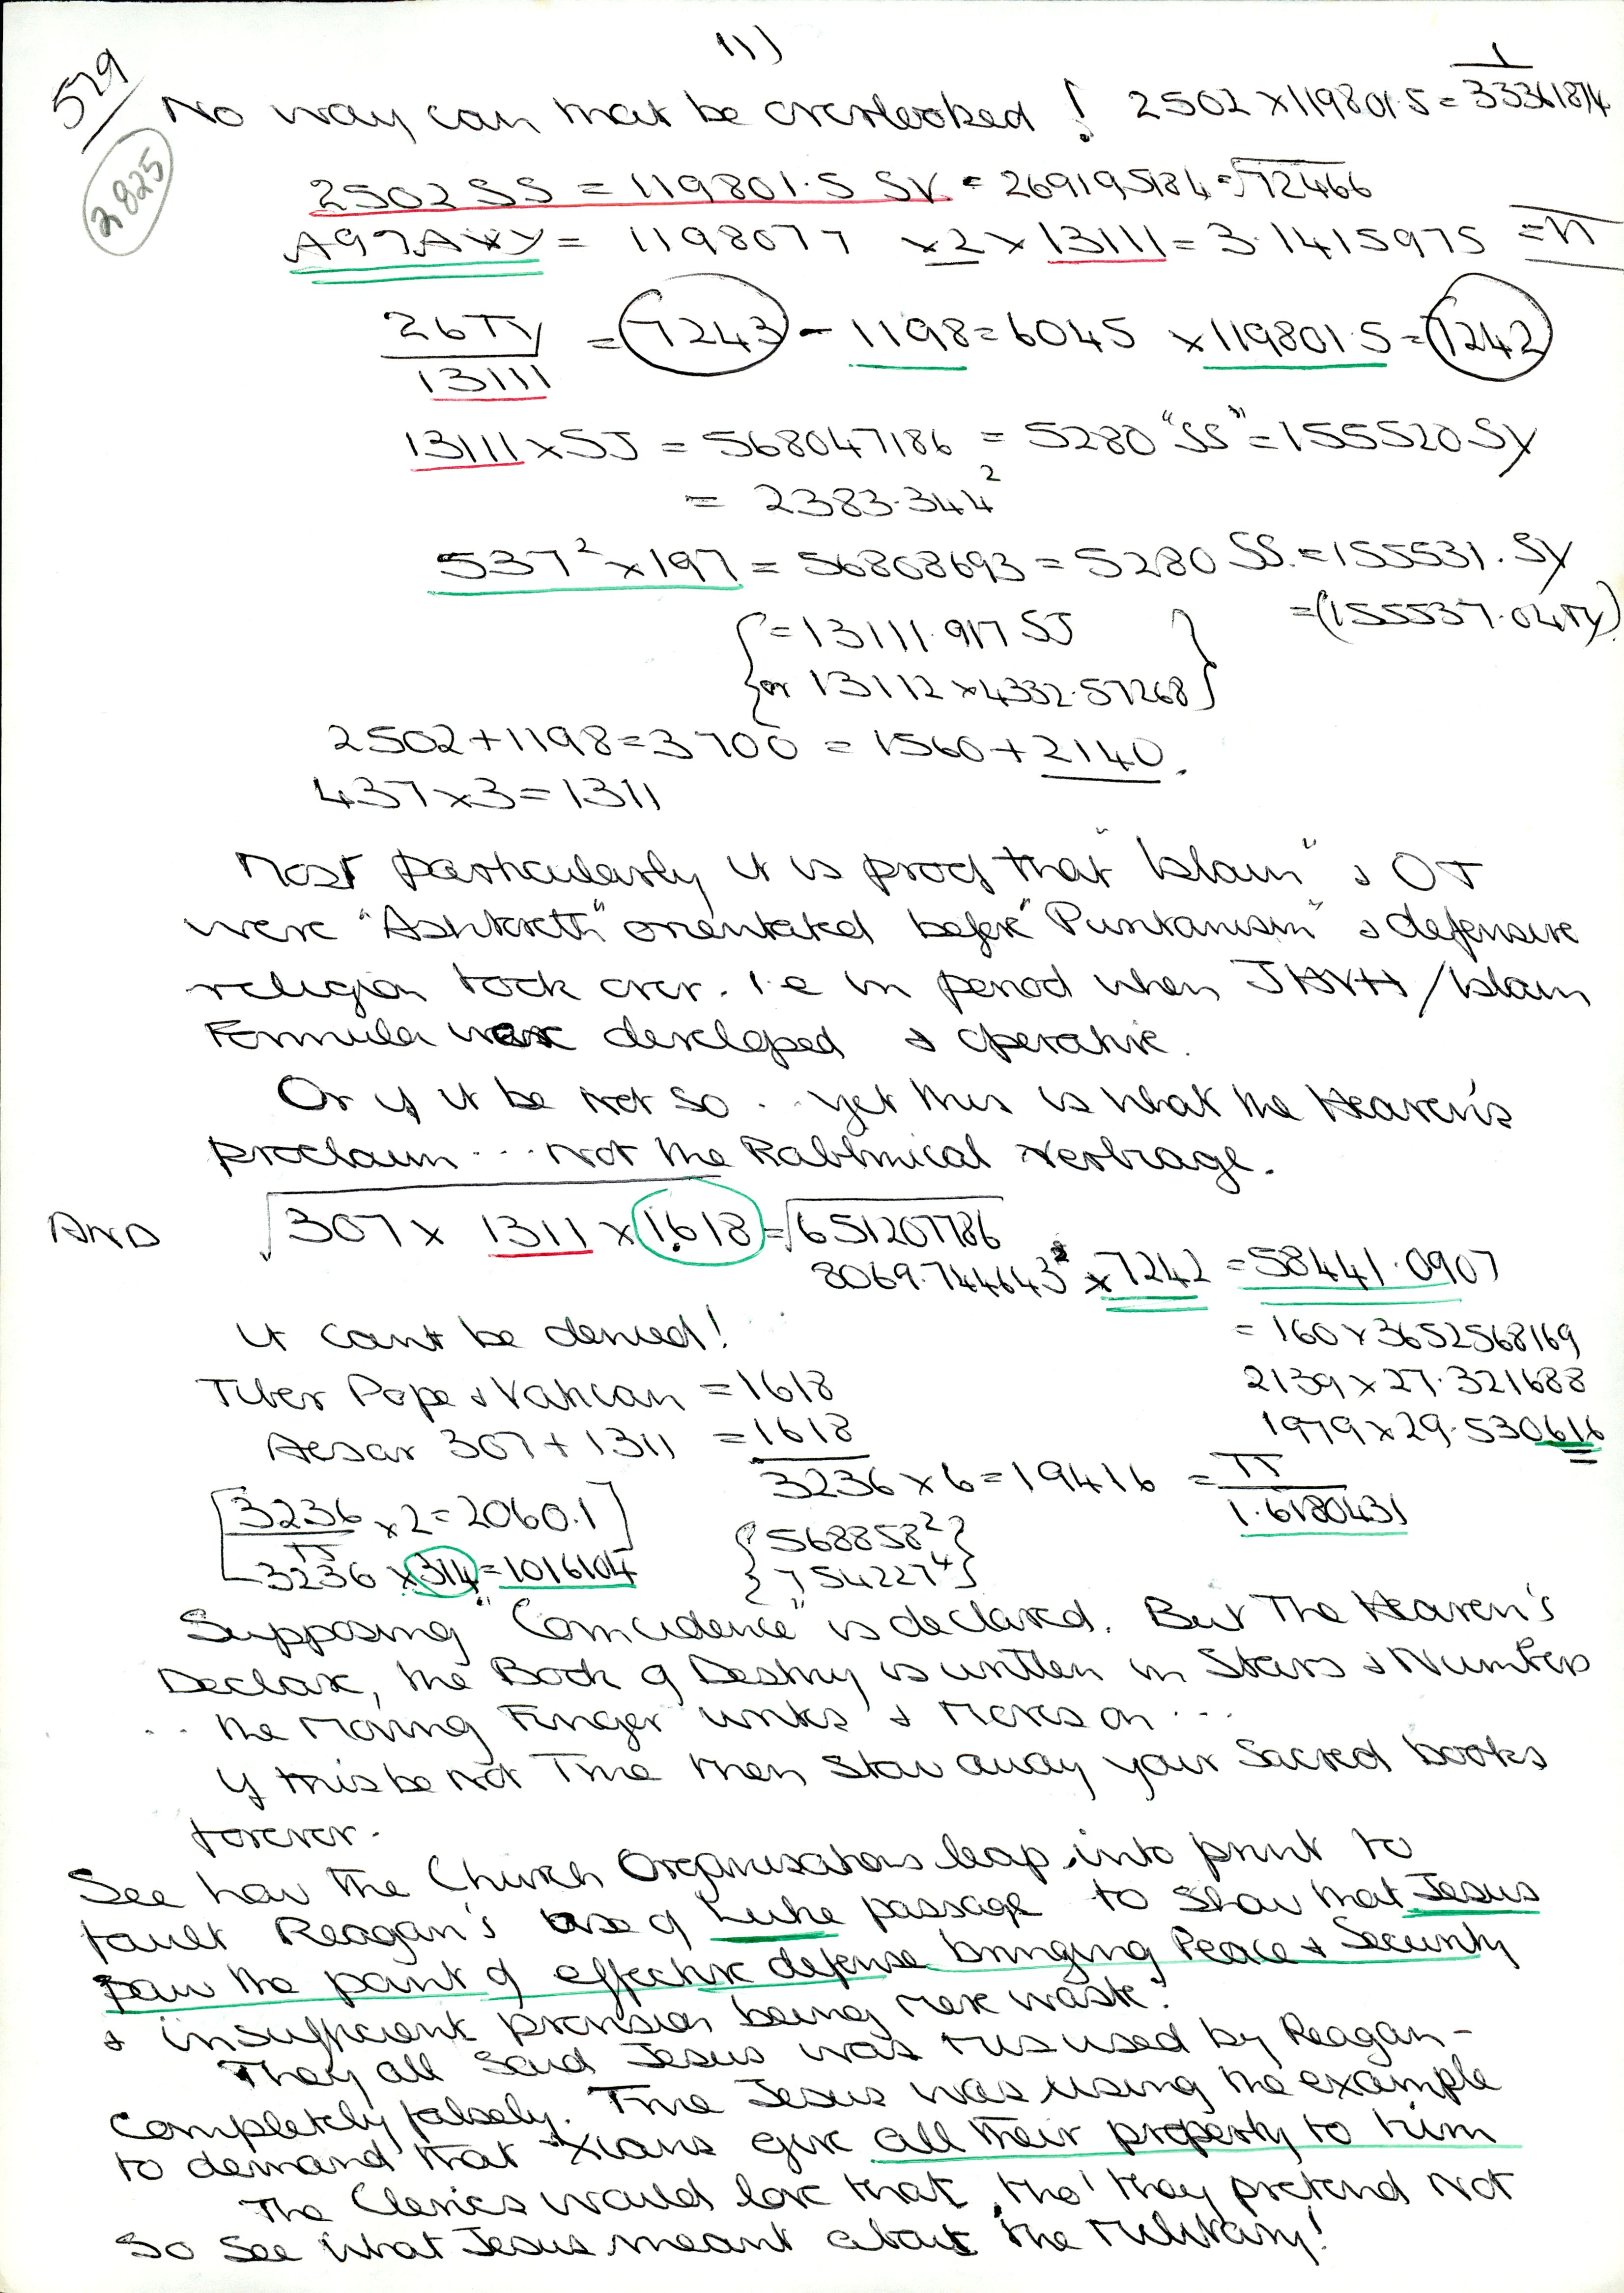 11)
529
2825
No way can that be overlooked! 2502 x 119801.5 = 1/33361874
2502 SS = 119801.5 SV = 269195184 = √72466
A97AWY = 1198077 x 2 x 13111 = 3.1415975 = π
26 TY / 13111 = 7243 - 1198 = 6045 x 119801.5 = 7242
13111 x SJ = 568047186 = 5280 "SS" = 155520 SY
= 2383.344²
537² x 197 = 56808693 = 5280 SS. = 155531. SY
= (155537.04 TY)
{= 13111.917 SJ
or 13112 x 4332.57268}
2502 + 1198 = 3700 = 1560 + 2140.
437 x 3 = 1311
Most particularly it is proof that "Islam" & OT
were "Ashtoreth" orientated before "Puritanism" & defensive
religion took over. I.e in period when JHVH / Islam
Formula were developed & operative.
Or if it be not so .. yet this is what the Heaven's
proclaim ... not the Rabbinical verbiage.
AND √307 x 1311 x 1.618 = √651207786
8069.744643² x 7242 = 58441.0907
It cant be denied!
= 160 x 3652568169
Tiber Pope & Vatican = 1618
2139 x 27.321688
Aesar 307 + 1311 = 1618
1979 x 29.530616
3236 x 6 = 19416 = π / 1.6180431
[3236 / π x 2 = 2060.1]
3236 x 314 = 1016104
{568858²}
{754227⁴}
Supposing "Coincidence" is declared. But The Heaven's
Declare, the Book of Destiny is written in Stars & Numbers
.. the Moving Finger writes & Moves on ...
If this be not True then Stow away your Sacred books
forever.
See how the Church Organisations leap into print to
fault Reagan's use of Luke passage to show that Jesus
saw the point of effective defense bringing Peace & Security
& insufficient provision being mere waste!
They all said Jesus was misused by Reagan -
completely falsely. True Jesus was using the example
to demand that Xians give all their property to him
The Clerics would love that, tho' they pretend not
So see what Jesus meant about the Military!